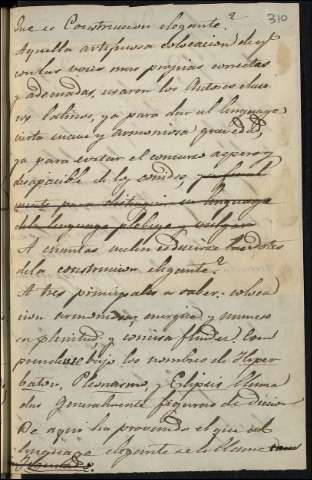 310
Que es Construccion elegante?
Aquella artificiosa colocacion de q.e
con las voces mas propias, correctas
y adornadas, usaron los Autores clasi
cos latinos, ya para dar al lenguage
cierta suave y armoniosa gravedad
ya para evitar el concurso aspero y
desapacible de los sonidos, y final
mente para distinguir su lenguage
del lenguage plebeyo, vulgar
A cuantas suelen reducirse las dotes
de la construccion elegante?
A tres principales a saber: coloca
cion armoniosa, energica y numero
sa plenitud, y concisa fluidez. Com
prendense bajo los nombres de Hyper
baton, Pleonasmo, y Elipsis llama
das generalmente figuras de diccion
De aqui ha provenido el que al
lenguage elegante se le llame
Figurado.